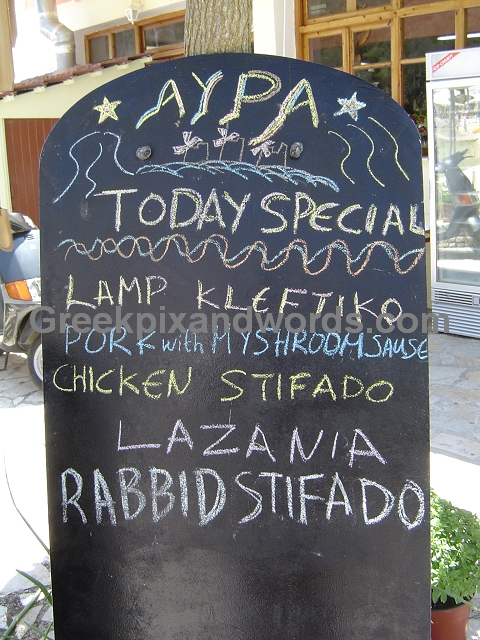 ΑΥΡΑ
TODAY SPECIAL
LAMP KLEFTIKO
Greekpixandwords.com
PORK with MYSHROOM SAUSE
CHICKEN STIFADO
LAZANIA
RABBID STIFADO